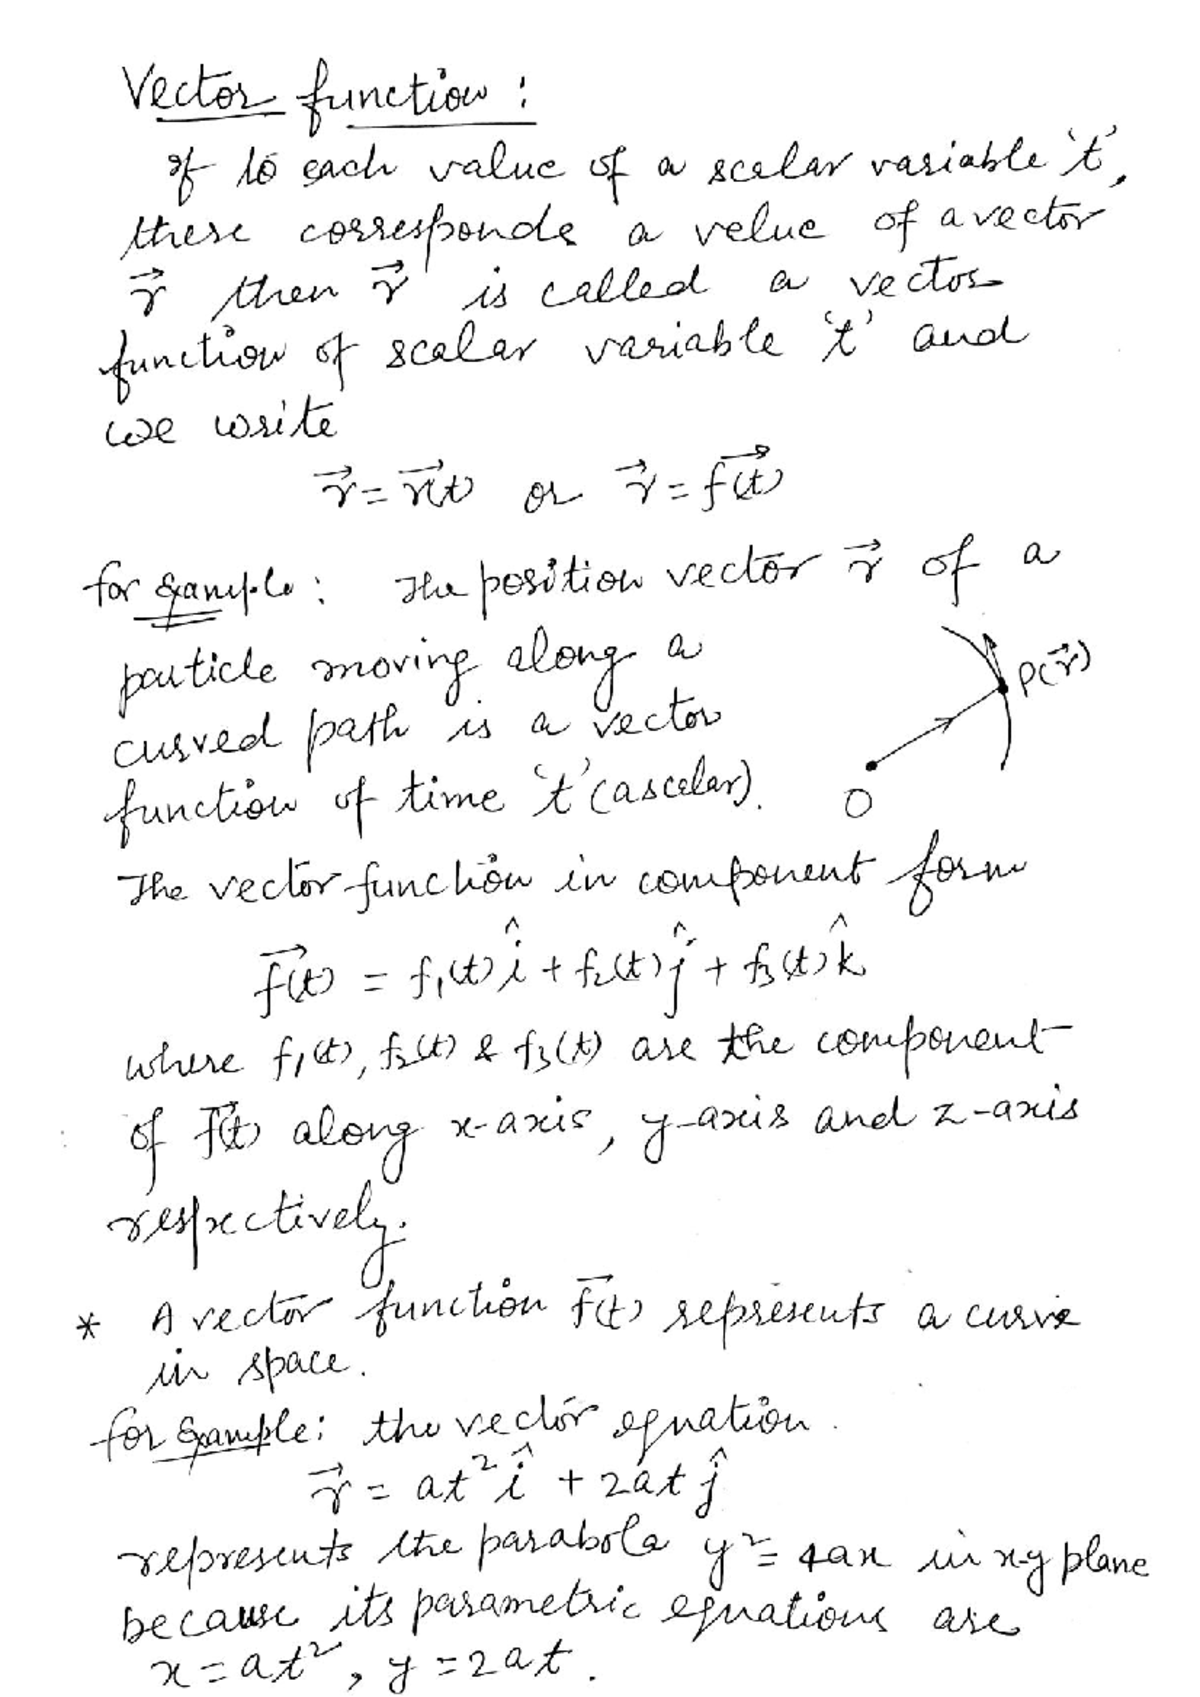 Vector function :
If to each value of a scalar variable 't',
there corresponds a value of a vector
r⃗ then r⃗ is called a vector
function of scalar variable 't' and
we write
r⃗ = r⃗(t) or r⃗ = f⃗(t)
for Example : The position vector r⃗ of a
particle moving along a
curved path is a vector
function of time 't' (a scalar).
P(r⃗)
O
The vector function in component form
f⃗(t) = f₁(t) î + f₂(t) ĵ + f₃(t) k̂
where f₁(t), f₂(t) & f₃(t) are the component
of f⃗(t) along x-axis, y-axis and z-axis
respectively.
* A vector function f⃗(t) represents a curve
in space.
for Example : the vector equation.
r⃗ = at² î + 2at ĵ
represents the parabola y² = 4ax in x-y plane
because its parametric equations are
x = at², y = 2at.